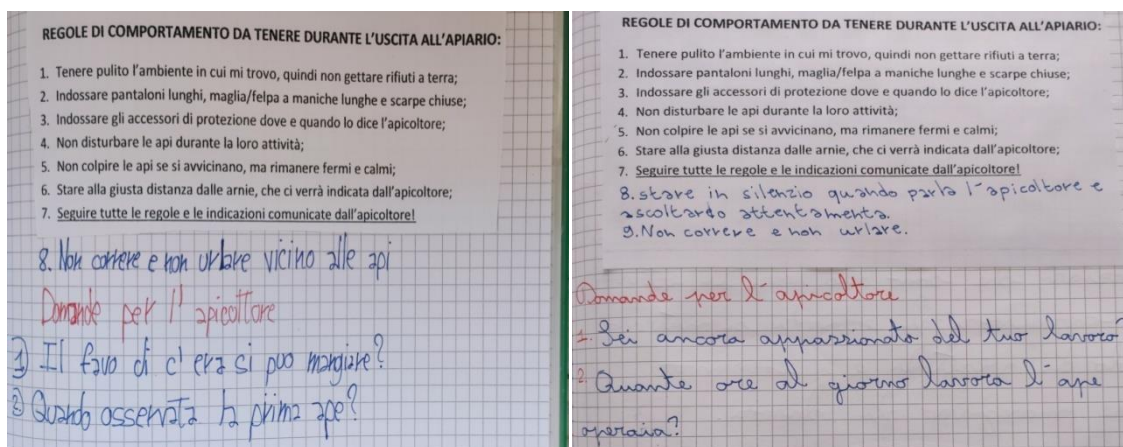 REGOLE DI COMPORTAMENTO DA TENERE DURANTE L'USCITA ALL'APIARIO:
1. Tenere pulito l'ambiente in cui mi trovo, quindi non gettare rifiuti a terra;
2. Indossare pantaloni lunghi, maglia/felpa a maniche lunghe e scarpe chiuse;
3. Indossare gli accessori di protezione dove e quando lo dice l'apicoltore;
4. Non disturbare le api durante la loro attività;
5. Non colpire le api se si avvicinano, ma rimanere fermi e calmi;
6. Stare alla giusta distanza dalle arnie, che ci verrà indicata dall'apicoltore;
7. Seguire tutte le regole e le indicazioni comunicate dall'apicoltore!
8. Non correre e non urlare vicino alle api
Domande per l'apicoltore
1) Il favo di c'era si puo mangiare?
2) Quando osservata la prima ape?
REGOLE DI COMPORTAMENTO DA TENERE DURANTE L'USCITA ALL'APIARIO:
1. Tenere pulito l'ambiente in cui mi trovo, quindi non gettare rifiuti a terra;
2. Indossare pantaloni lunghi, maglia/felpa a maniche lunghe e scarpe chiuse;
3. Indossare gli accessori di protezione dove e quando lo dice l'apicoltore;
4. Non disturbare le api durante la loro attività;
5. Non colpire le api se si avvicinano, ma rimanere fermi e calmi;
6. Stare alla giusta distanza dalle arnie, che ci verrà indicata dall'apicoltore;
7. Seguire tutte le regole e le indicazioni comunicate dall'apicoltore!
8. stare in silenzio quando parla l'apicoltore e
ascoltardo attentamenta.
9. Non correre e non urlare.
Domande per l'apicoltore
1. Sei ancora appassionato del tuo lavoro?
2. Quante ore al giorno lavora l'ape
operaia?